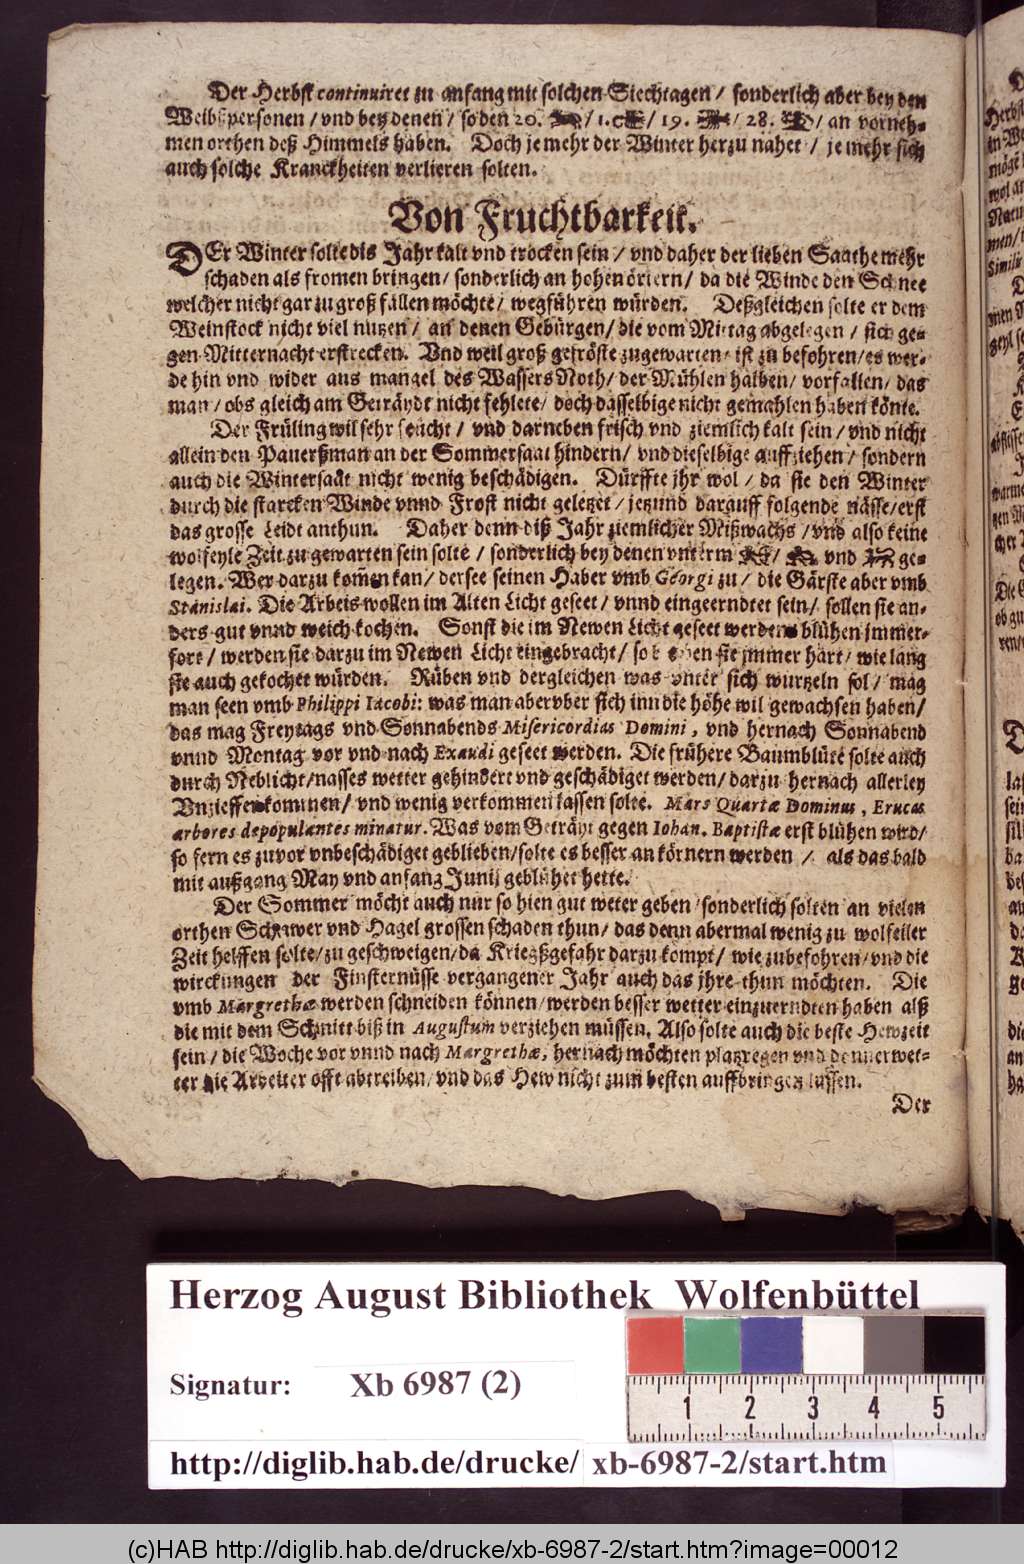 Der Herbst continuiret zu anfang mit solchen Siechtagen / sonderlich aber bey den
Weibspersonen / vnd bey denen / so den 20. / 19. / 28. / an vorneh-
men orthen deß Himmels haben. Doch je mehr der Winter herzu nahet / je mehr sich
auch solche Kranckheiten verlieren solten.
Von Fruchtbarkeit.
DEr Winter solte dis Jahr kalt vnd trocken sein / vnd daher der lieben Saathe mehr
schaden als fromen bringen / sonderlich an hohen örtern / da die Winde den Schnee
welcher nicht gar zu groß fallen möchte / wegführen würden. Deßgleichen solte er dem
Weinstock nicht viel nutzen / an denen Gebürgen / die vom Mittag abgelegen / sich ge-
gen Mitternacht erstrecken. Vnd weil groß gefröste zugewarten / ist zu befohren / es wer-
de hin vnd wider aus mangel des Wassers Noth / der Mühlen halben / vorfallen / das
man / obs gleich am Geträydt nicht fehlete / doch dasselbige nicht gemahlen haben könte.
Der Früling wil sehr feucht / vnd darneben frisch vnd ziemlich kalt sein / vnd nicht
allein den Pauerßman an der Sommersaat hindern / vnd dieselbige auffziehen / sondern
auch die Wintersaat nicht wenig beschädigen. Dürffte jhr wol / da sie den Winter
durch die starcken Winde vnnd Frost nicht geletzet / jetzund darauff folgende nässe / erst
das grosse Leidt anthun. Daher denn diß Jahr ziemlicher Mißwachs / vnd also keine
wolfeyle Zeit zu gewarten sein solte / sonderlich bey denen vnterm / vnd ge-
legen. Wer darzu kom̃en kan / der see seinen Haber vmb Georgi zu / die Gärste aber vmb
Stanislai. Die Arbeis wollen im Alten Licht geseet / vnnd eingeerndtet sein / sollen sie an-
ders gut vnnd weich kochen. Sonst die im Newen Licht geseet werden blühen jmmer-
fort / werden sie darzu im Newen Licht eingebracht / so bleiben sie jmmer hart / wie lang
sie auch gekochet würden. Rüben vnd dergleichen was vnter sich wurtzeln sol / mag
man seen vmb Philippi Iacobi: was man aber vber sich inn die höhe wil gewachsen haben /
das mag Freytags vnd Sonnabends Misericordias Domini, vnd hernach Sonnabend
vnnd Montag vor vnd nach Exaudi geseet werden. Die frühere Baumblüte solte auch
durch Neblicht / nasses wetter gehindert vnd geschädiget werden / darzu hernach allerley
Vnzieffer kommen / vnd wenig verkommen lassen solte. Mars Quartæ Dominus, Erucas
arbores depopulantes minatur. Was vom Geträyt gegen Iohan. Baptistæ erst blühen wird /
so fern es zuvor vnbeschädiget geblieben / solte es besser an körnern werden / als das bald
mit außgang May vnd anfang Junij geblühet hette.
Der Sommer möcht auch nur so hien gut weter geben / sonderlich solten an vielen
orthen Schawer vnd Hagel grossen schaden thun / das denn abermal wenig zu wolfeiler
Zeit helffen solte / zu geschweigen / da Kriegßgefahr darzu kompt / wie zubefohren / vnd die
wirckungen der Finsternüsse vergangener Jahr auch das jhre thun möchten. Die
vmb Margrethæ werden schneiden können / werden besser wetter einzuerndten haben alß
die mit dem Schnitt biß in Augustum verziehen müssen. Also solte auch die beste Hewzeit
sein / die Woche vor vnnd nach Margrethæ, hernach möchten platzregen vnd donnerwet-
ter die Arbeiter offt abtreiben / vnd das Hew nicht zum besten auffbringen lassen.
Der
Herzog August Bibliothek Wolfenbüttel
Signatur: Xb 6987 (2)
1 2 3 4 5
http://diglib.hab.de/drucke/ xb-6987-2/start.htm
(c)HAB http://diglib.hab.de/drucke/xb-6987-2/start.htm?image=00012